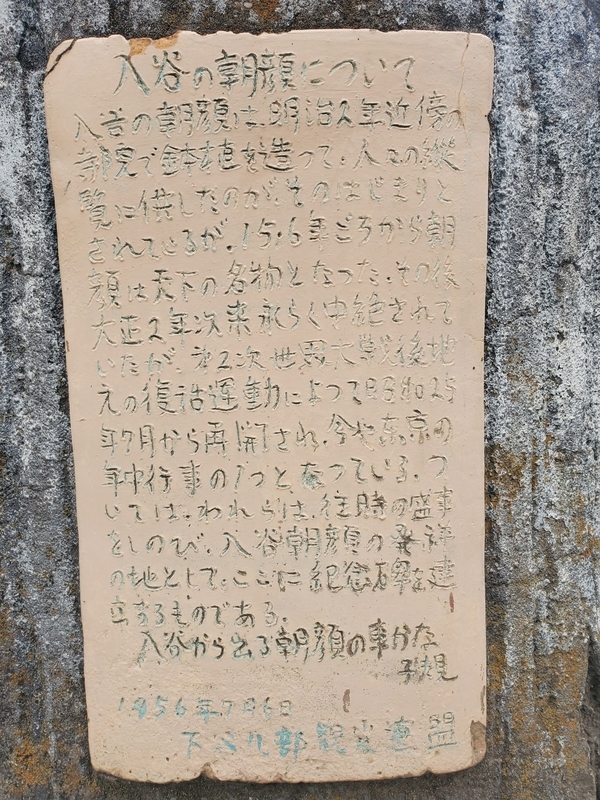 入谷の朝顔について
入谷の朝顔は.明治久年近傍の
寺院で鉢植を造って.人々の縦
覧に供したのが.そのはじまりと
されてるが.15.6年ごろから朝
顔は天下の名物となった.その後
大正2年次来永らく中絶されて
いたが.第2次世界大戦後地
元の復活運動によって昭和25
年7月から再開され.今や東京の
年中行事の1つとなっている.つ
いては.われらは.往時の盛事
をしのび.入谷朝顔の発祥
の地として.ここに紀念碑を建
立するものである.
入谷から出る朝顔の車かな
子規
1956年7月6日
下谷 部 連盟